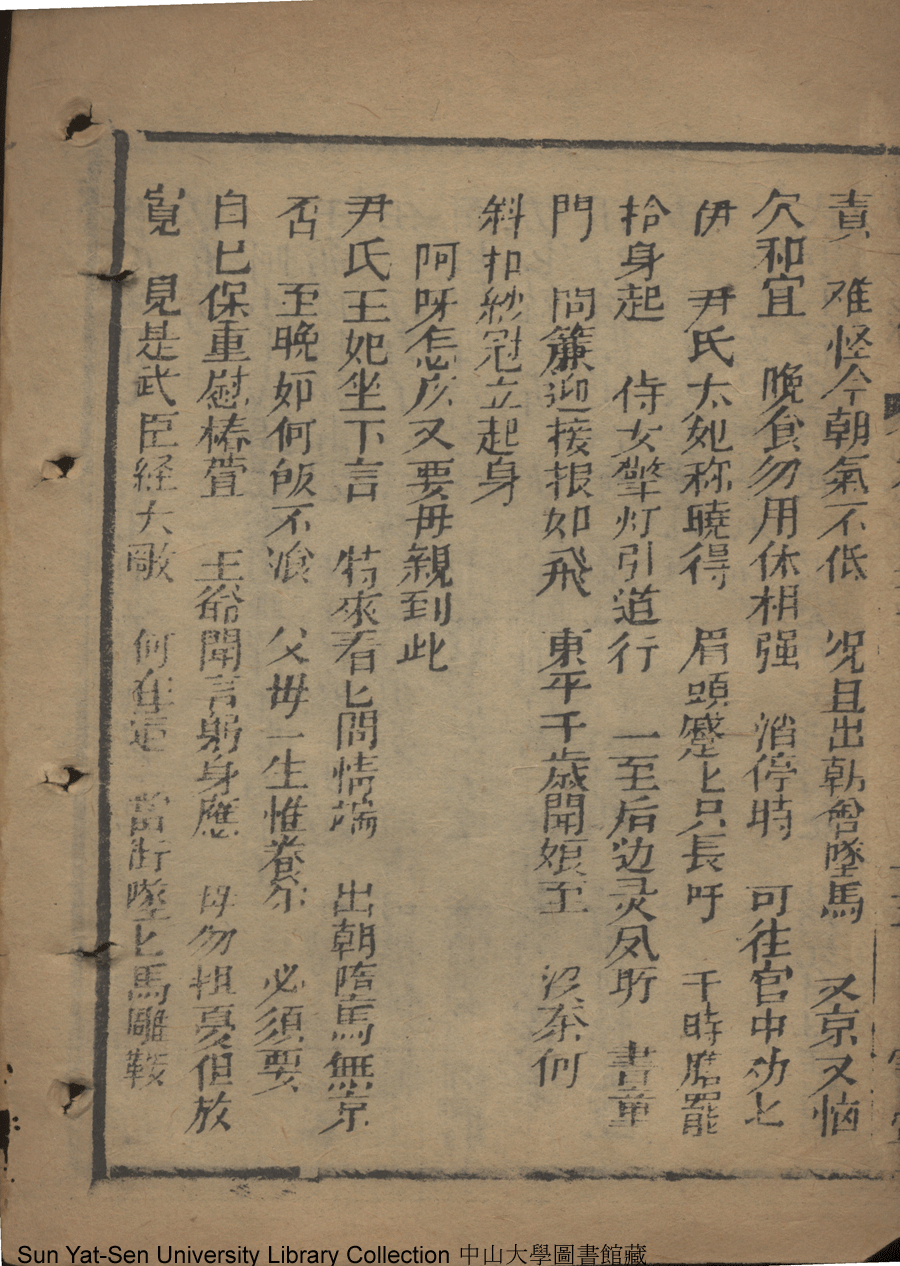 責　难怪今朝氣不低　况且出朝會墜馬　又京又惱
欠和宜　晚食勿用休相强　消停時　可往官中劝匕
伊　尹氏太妃称曉得　眉頭蹙匕只長吁　千時膳罷
拾身起　侍女擎灯引道行　一至后边灵凤所　書童
門　問簾迎接报如飛　東平千歳聞娘至　没奈何
斜扣紗冠立起身
阿呀怎庅又要毋親到此
尹氏王妃坐下言　特來看匕問情端　出朝隋馬無京
否　至晚如何飯不飡　父毋一生惟养尔　必須要
自巳保重慰椿萱　王爺聞言躬身應　毋勿担憂但放
寛　見是武臣経大敵　何在這　當街墜匕馬雕鞍
Sun Yat-Sen University Library Collection 中山大學圖書館藏